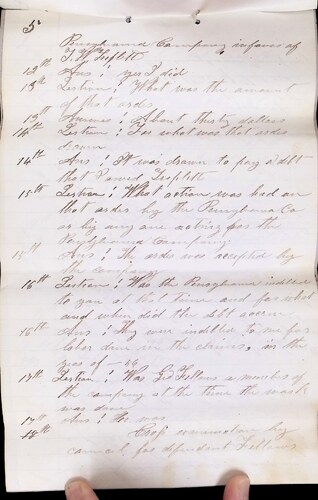 5"
Pensylvania Company in favor of
T. W. Triplett
12th Ans: yes I did
13th Qestion: What was the amount
of that order
13th Answer: About thirty dollars
14th Qestion: For what was that order
drawn
14th Ans: It was drawn to pay a debt
that I owed Triplett
15th Qestion: What action was had on
that order by the Pensylvania Co
or by any one acting for the
Pensylvania Company
15th Ans: The order was accepted by
the company
16th Qestion: Was the Pensylvania indebted
to you at that time and for what
and when did the debt accrue
16th Ans: They were indebted to me for
labor done in the claims, in the
year of -66
17th Qestion: Was Geo Fellows a member of
the company at the time the work
was done
17th Ans: He was
18th Cross examination by
council for defendant Fellows